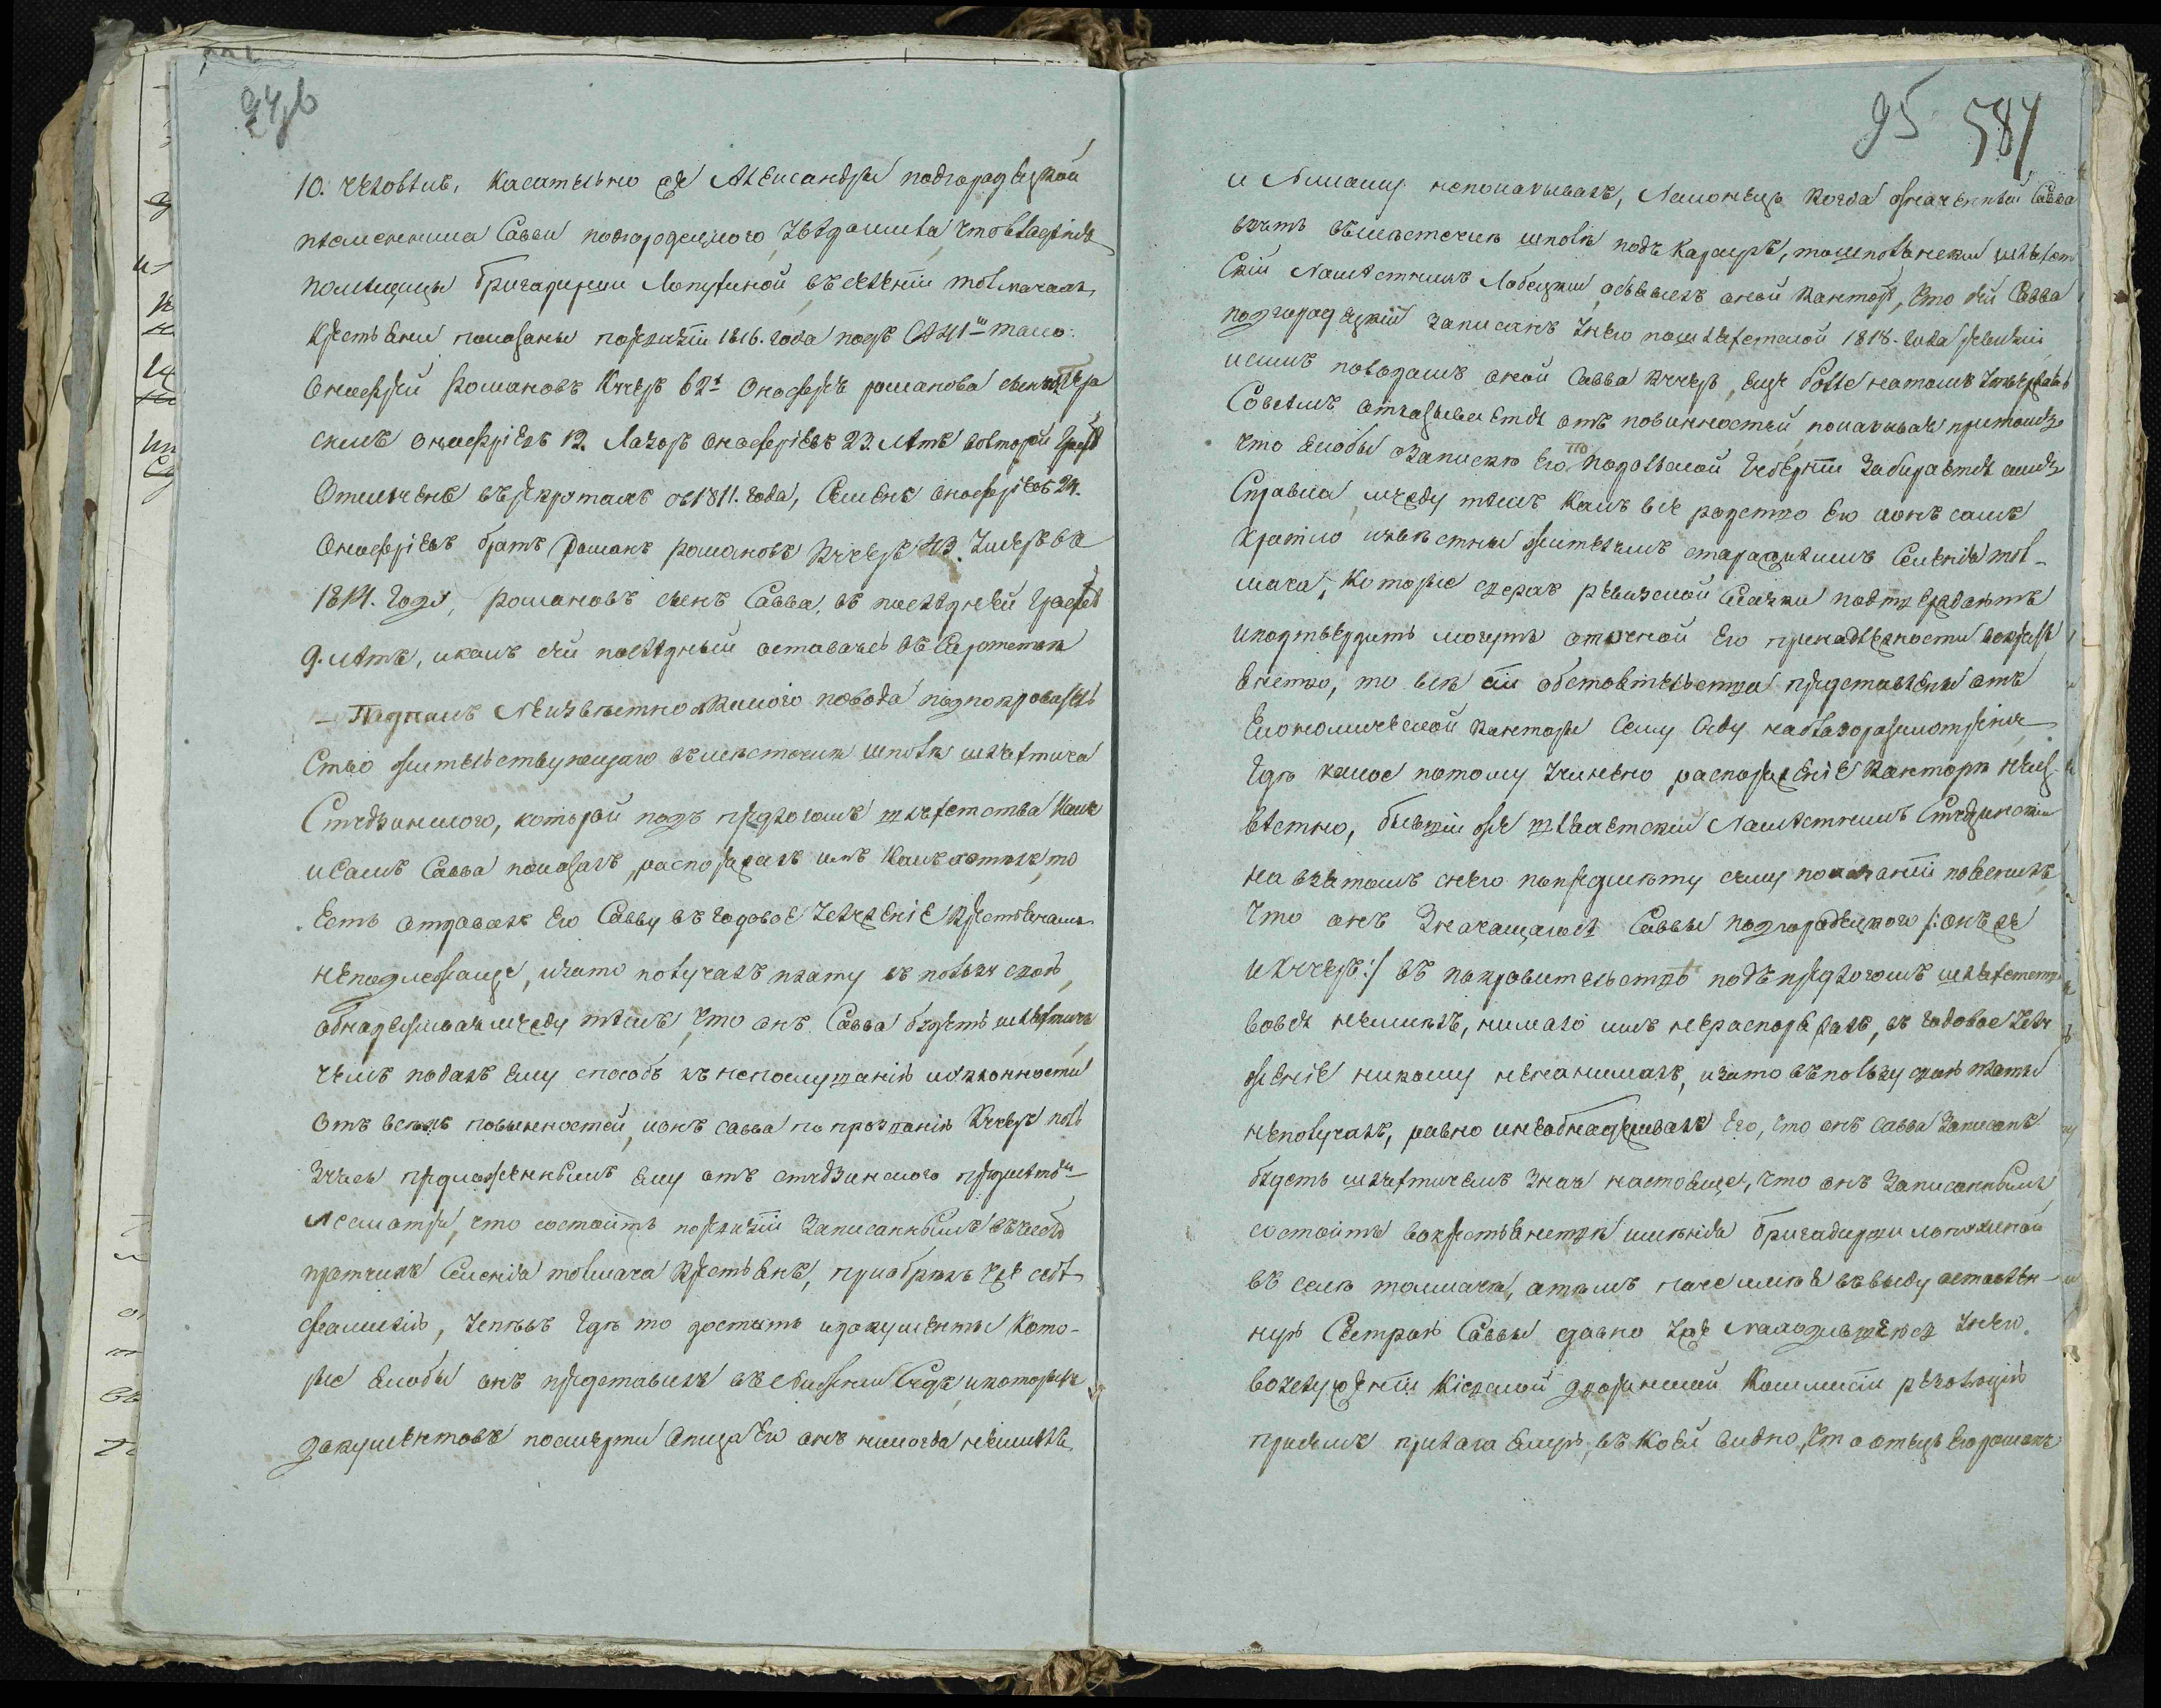 10. человѣкъ, касательно же Александры подгородецкой
племенника Саввы подгородецкого, Чтовладѣнія
помѣщицы бригадирши Лопухиной въ селеніи толмачахъ,
крестьяне показаны поревизіи 1816. года подъ № 41м тамо:
Онофрей Романовъ Кучеръ 62х Онофрея романова сынъ
Онофріевъ 12. Лазоръ онофріевъ 23. лѣтъ вовторой графѣ
Отмѣченъ въ рекрутахъ съ 1811. года, Семенъ онофріевъ 24.
Онофріевъ братъ Романъ романовъ Кучеръ 43. Умеръ въ
1814. году, романовъ сынъ Савва, въ послѣдней графѣ
9. лѣтъ, икакъ сей послѣдный оставаясь въ Сиротствѣ
Неизвѣстно скакого повода подпокровитель
Ство жительствующаго вмѣстечкѣ шполѣ шляхтича
Студзинского, которой подъ предлогомъ шляхетства какъ
исамъ Савва показалъ, распоряжалъ имъ какъ хотѣлъ, то
Есть отдавалъ Его Савву въ годовое услуженіе крестьянамъ
неподлежаще, изато получалъ плату въ пользу свою,
обнадеживая между тѣмъ, что онъ Савва будетъ шляхтичъ,
чемъ подалъ ему способъ къ непослушанію иуклонности
отъ всѣхъ повинностей, ионъ савва по прозванію Кучеръ поль
зуясь предложеннымъ ему отъ студзинского предметомъ
несмотря, что состоитъ поревизіи записаннымъ въчислѣ
протчихъ Селенія толмача крестьянъ, приобрѣлъ уже себѣ
фамилію, успѣвъ гдѣ то достать идокументы Кото-
рые якобы онъ представилъ въ Судѣ, икоторыхъ
документовъ посмерти отца Его онъ никогда неимѣлъ,
94 об
95 587
и никому непоказывалъ, Наконецъ когда означенный Савва
взятъ вмѣстечкѣ шполѣ подъ Караулъ, тошполянский шляхет
Скій Намѣстникъ Лобецкий объявилъ оной Канторѣ, что сей Савва
подгородецкій записанъ Унего пошляхетской 1818. года ревизіи
исимъ поводомъ оной Савва Кучеръ, еще болѣе натомъ утвердясь
Совсѣмъ отказывается отъ повинностей, показывая притомъ
что якобы Озаписки Его по подольской губерніи забирается
Справка, между тѣмъ какъ все родство Его ионъ самъ
Кратко извѣстны жителямъ старожиламъ Селенія тол-
мача, Которые сверхъ ревизской Скаски подтверждаютъ
иподтвердить могутъ оточной Его принадлежности вокресть
янство, то всѣ сіи обстоятельства представлены отъ
Економической Канторы Сему Суду наблагоразсмотреніе
Гдѣ какое потому учинено распоряженіе Канторѣ неиз-
вѣстно, бывшій же шляхетский Намѣстникъ Студзинский
на взятомъ снего попредмѣту сему показаніи пояснилъ
Что онъ Значащагося Саввы подгородецкого /: онъ же
иКучеръ :/ въ покровительствѣ подъ предлогомъ шляхетства
вовся неимѣлъ, нимало имъ нераспоряжалъ, въ годовое услу
женіе никому ненанималъ, изато въпользу свою платы
неполучалъ, равно инеобнадеживалъ Его, что онъ Савва записанъ
будетъ шляхтичемъ зная настояще, что онъ Записаннымъ
состоитъ вокрестьянствѣ имѣнія бригадирши лопухиной
въ селѣ толмачѣ, атакъ
Сестрою Саввы давно уже Находившеюся унего
воуслуженіи Кіевской дворянской Коммисіи резолюцію
присемъ прилагаемую, въ коей видно, что отецъ Его романъ